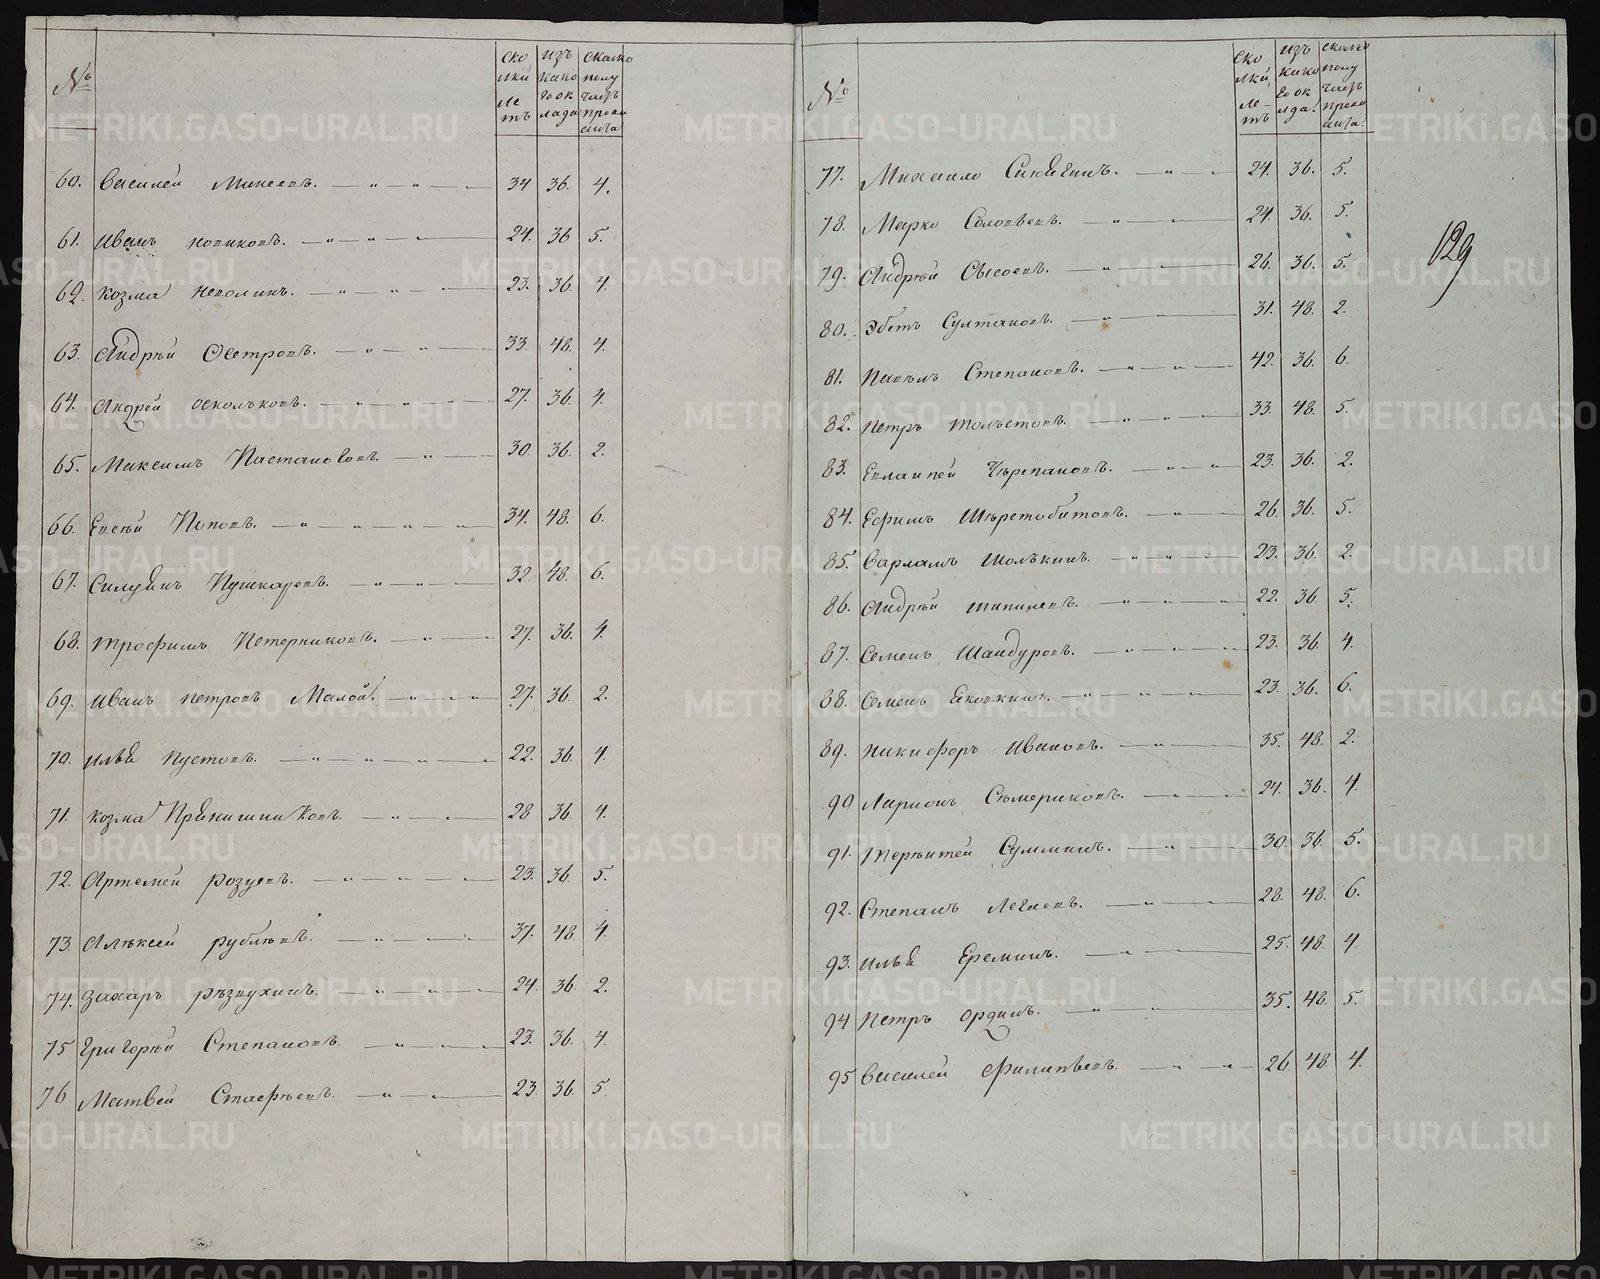 №
Ско
лки
ле
тъ
изъ
како
го ок
лада
сколко
полу
чаетъ
прови
анта
60. Василей Минеевъ. 34 36. 4.
61. Иванъ новиковъ. 24. 36 5.
62. Козма неволинъ. 23. 36. 4.
63. Андрѣй Осетровъ. 33. 48. 4.
64. Андрей осколъковъ. 27. 36. 4.
65. Максимъ 30. 36. 2.
66. Евсѣй Поповъ. 34. 48. 6.
67. Силуянъ Пушкаревъ. 32. 48. 6.
68. трофимъ Петерниковъ. 27. 36. 4.
69. Иванъ петровъ Малой. 27. 36. 2.
70. Илья Пустовъ. 22. 36. 4.
71. Козма Прянишниковъ. 28 36. 4.
72. Артемей розуевъ. 23. 36. 5.
73. Алѣксей рублевъ. 37. 48. 4.
74. Захаръ рѣзвухинъ. 24. 36. 2.
75 Григорѣй Степановъ. 23. 36. 4.
76 Матвей Стаеѳѣевъ. 23. 36. 5.
№
Ско
лки
ле-
тъ
изъ
како
го ок
лда
сколко
полу
чаетъ
прови
анта
77. Михаило Сикягинъ. 24. 36. 5.
78. Марко Соловьевъ. 24. 36. 5.
79. Андрѣй Сысоевъ. 26. 36. 5.
129
80. Эбетъ Султановъ. 31. 48. 2.
81. Павѣлъ Степановъ. 42. 36. 6.
82. Петръ толъстовъ. 33. 48. 5.
83. Евлампей Чѣрепановъ. 23. 36. 2.
84. Ефимъ Шѣрстобитовъ. 26. 36. 5.
85. Варламъ Шолъкинъ. 23. 36. 2.
86. Андрѣй шипицевъ. 22. 36 5.
87. Семенъ Шайдуровъ. 23. 36. 4.
88. Семенъ Яковкинъ. 23. 36. 6.
89. Никифоръ Ивановъ. 35. 48. 2.
90 Ларионъ Сѣмериковъ. 24. 36. 4.
91. Терѣнтей Сумминъ. 30. 36. 5.
92. Степанъ 28. 48. 6.
93. Илья Ереминъ. 25. 48. 4
94 Петръ ординъ. 35. 48. 5.
95 Василей Филипьевъ. 26. 48. 4.